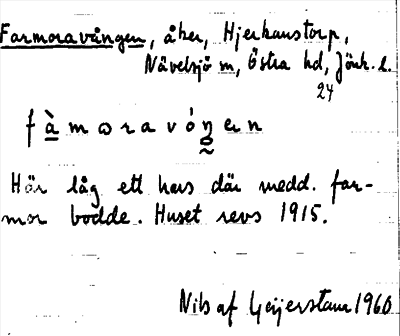 Farmoravången, åker, Hjerkanstorp,
Nävelsjö sn, Östra hd, Jönk. l.
24
fàmoravóŋen
Här låg ett hus där medd. far-
mor bodde. Huset revs 1915.
Nils af Geijerstam 1960